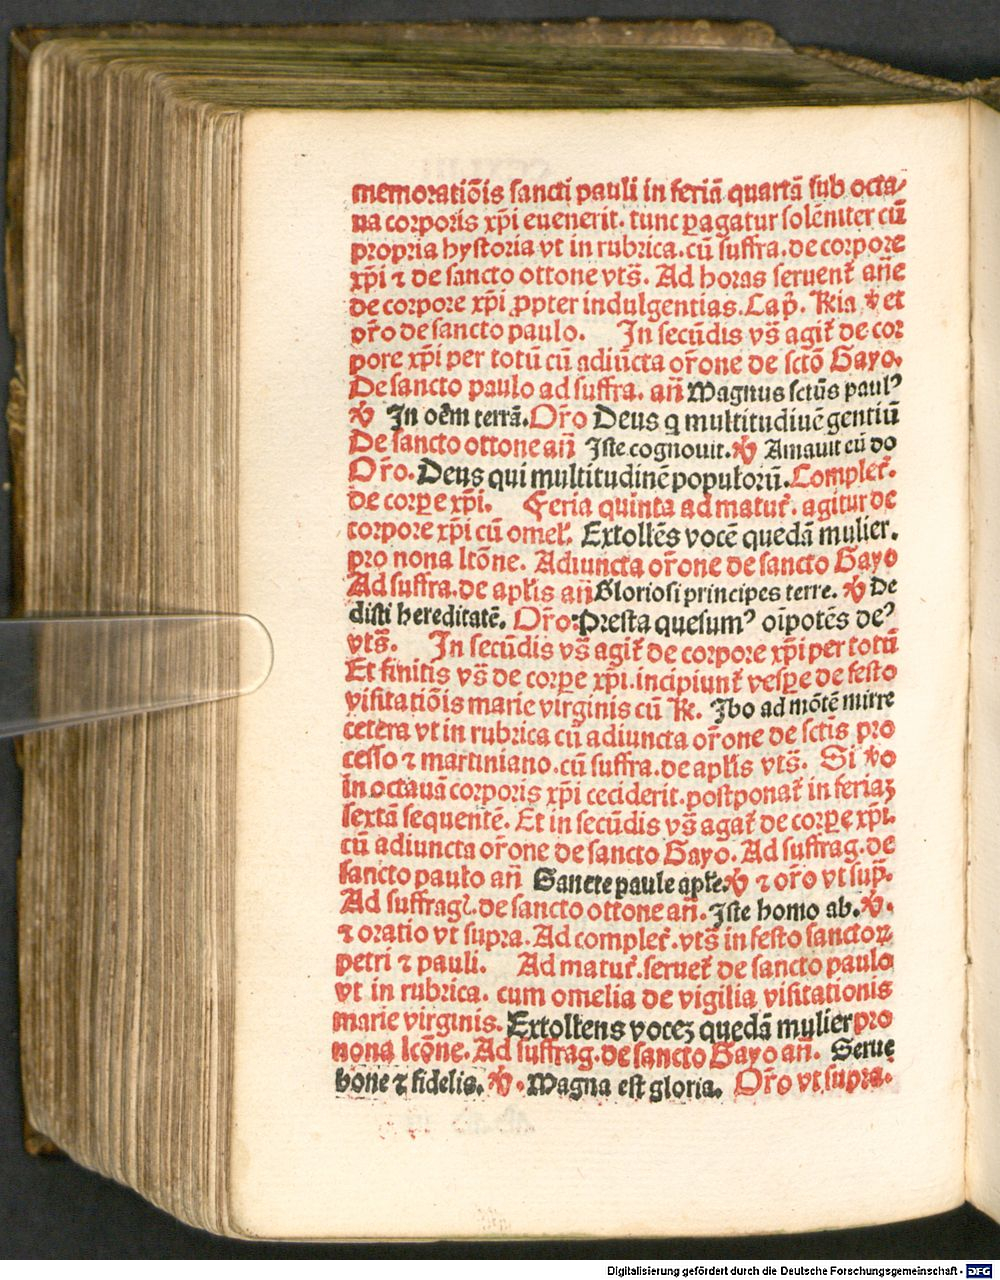 memoratiõis sancti pauli in feriã quartã sub octa⸗
ua corporis xp̃i euenerit. tunc ꝑagatur solẽniter cũ
propria hystoria vt in rubrica. cũ suffra. de corpore
xp̃i ⁊ de sancto ottone vts̃. Ad horas seruent̃ añe
de corpore xp̃i ꝓpter indulgentias. Cap̃. R̃ia ℣ et
or̃o de sancto paulo. In secũdis vs̃ agit̃ de cor
pore xp̃i per totũ cũ adiũcta or̃one de sctõ Gayo.
De sancto paulo ad suffra. añ Magnus sctũs paulꝰ
℣ In oẽm terrã. Or̃o Deus q multitudinẽ gentiũ
De sancto ottone añ Iste cognouit. ℣ Amauit eũ do
Or̃o. Deus qui multitudinẽ populorũ. Complet̃.
de corꝑe xp̃i. Feria quinta ad matut̃. agitur de
corpore xp̃i cũ omel̃. Extollẽs vocẽ quedã mulier.
pro nona lcõne. Adiuncta or̃one de sancto Gayo
Ad suffra. de apl̃is añ Gloriosi principes terre. ℣ De
disti hereditatẽ. Or̃o: Presta quesumꝰ oĩpotẽs deꝰ
vts̃. In secũdis vs̃ agit̃ de corpore xp̃i per totũ
Et finitis vs̃ de corꝑe xp̃i. incipiunt̃ vesꝑe de festo
visitatiõis marie virginis cũ R̃. Ibo ad mõtẽ mirre
cetera vt in rubrica cũ adiuncta or̃one de sctĩs pro
cesso ⁊ martiniano. cũ suffra. de apl̃is vts̃. Si ℣o
in octauã corporis xp̃i ceciderit. postponat̃ in feriaꝫ
sextã sequentẽ. Et in secũdis vs̃ agat̃ de corꝑe xp̃i.
cũ adiuncta or̃one de sancto Gayo. Ad suffrag. de
sancto paulo añ Sancte paule apl̃e. ℣ ⁊ or̃o vt sup̃.
Ad suffragl̃. de sancto ottone añ. Iste homo ab. ℣.
⁊ oratio vt supra. Ad complet̃. vts̃ in festo sanctoꝝ
petri ⁊ pauli. Ad matut̃. seruet̃ de sancto paulo
vt in rubrica. cum omelia de vigilia visitationis
marie virginis. Extollens voceꝫ quedã mulier pro
nona lcõne. Ad suffrag. de sancto Gayo añ. Serue
bone ⁊ fidelis. ℣. Magna est gloria. Or̃o vt supra.
Digitalisierung gefördert durch die Deutsche Forschungsgemeinschaft - DFG